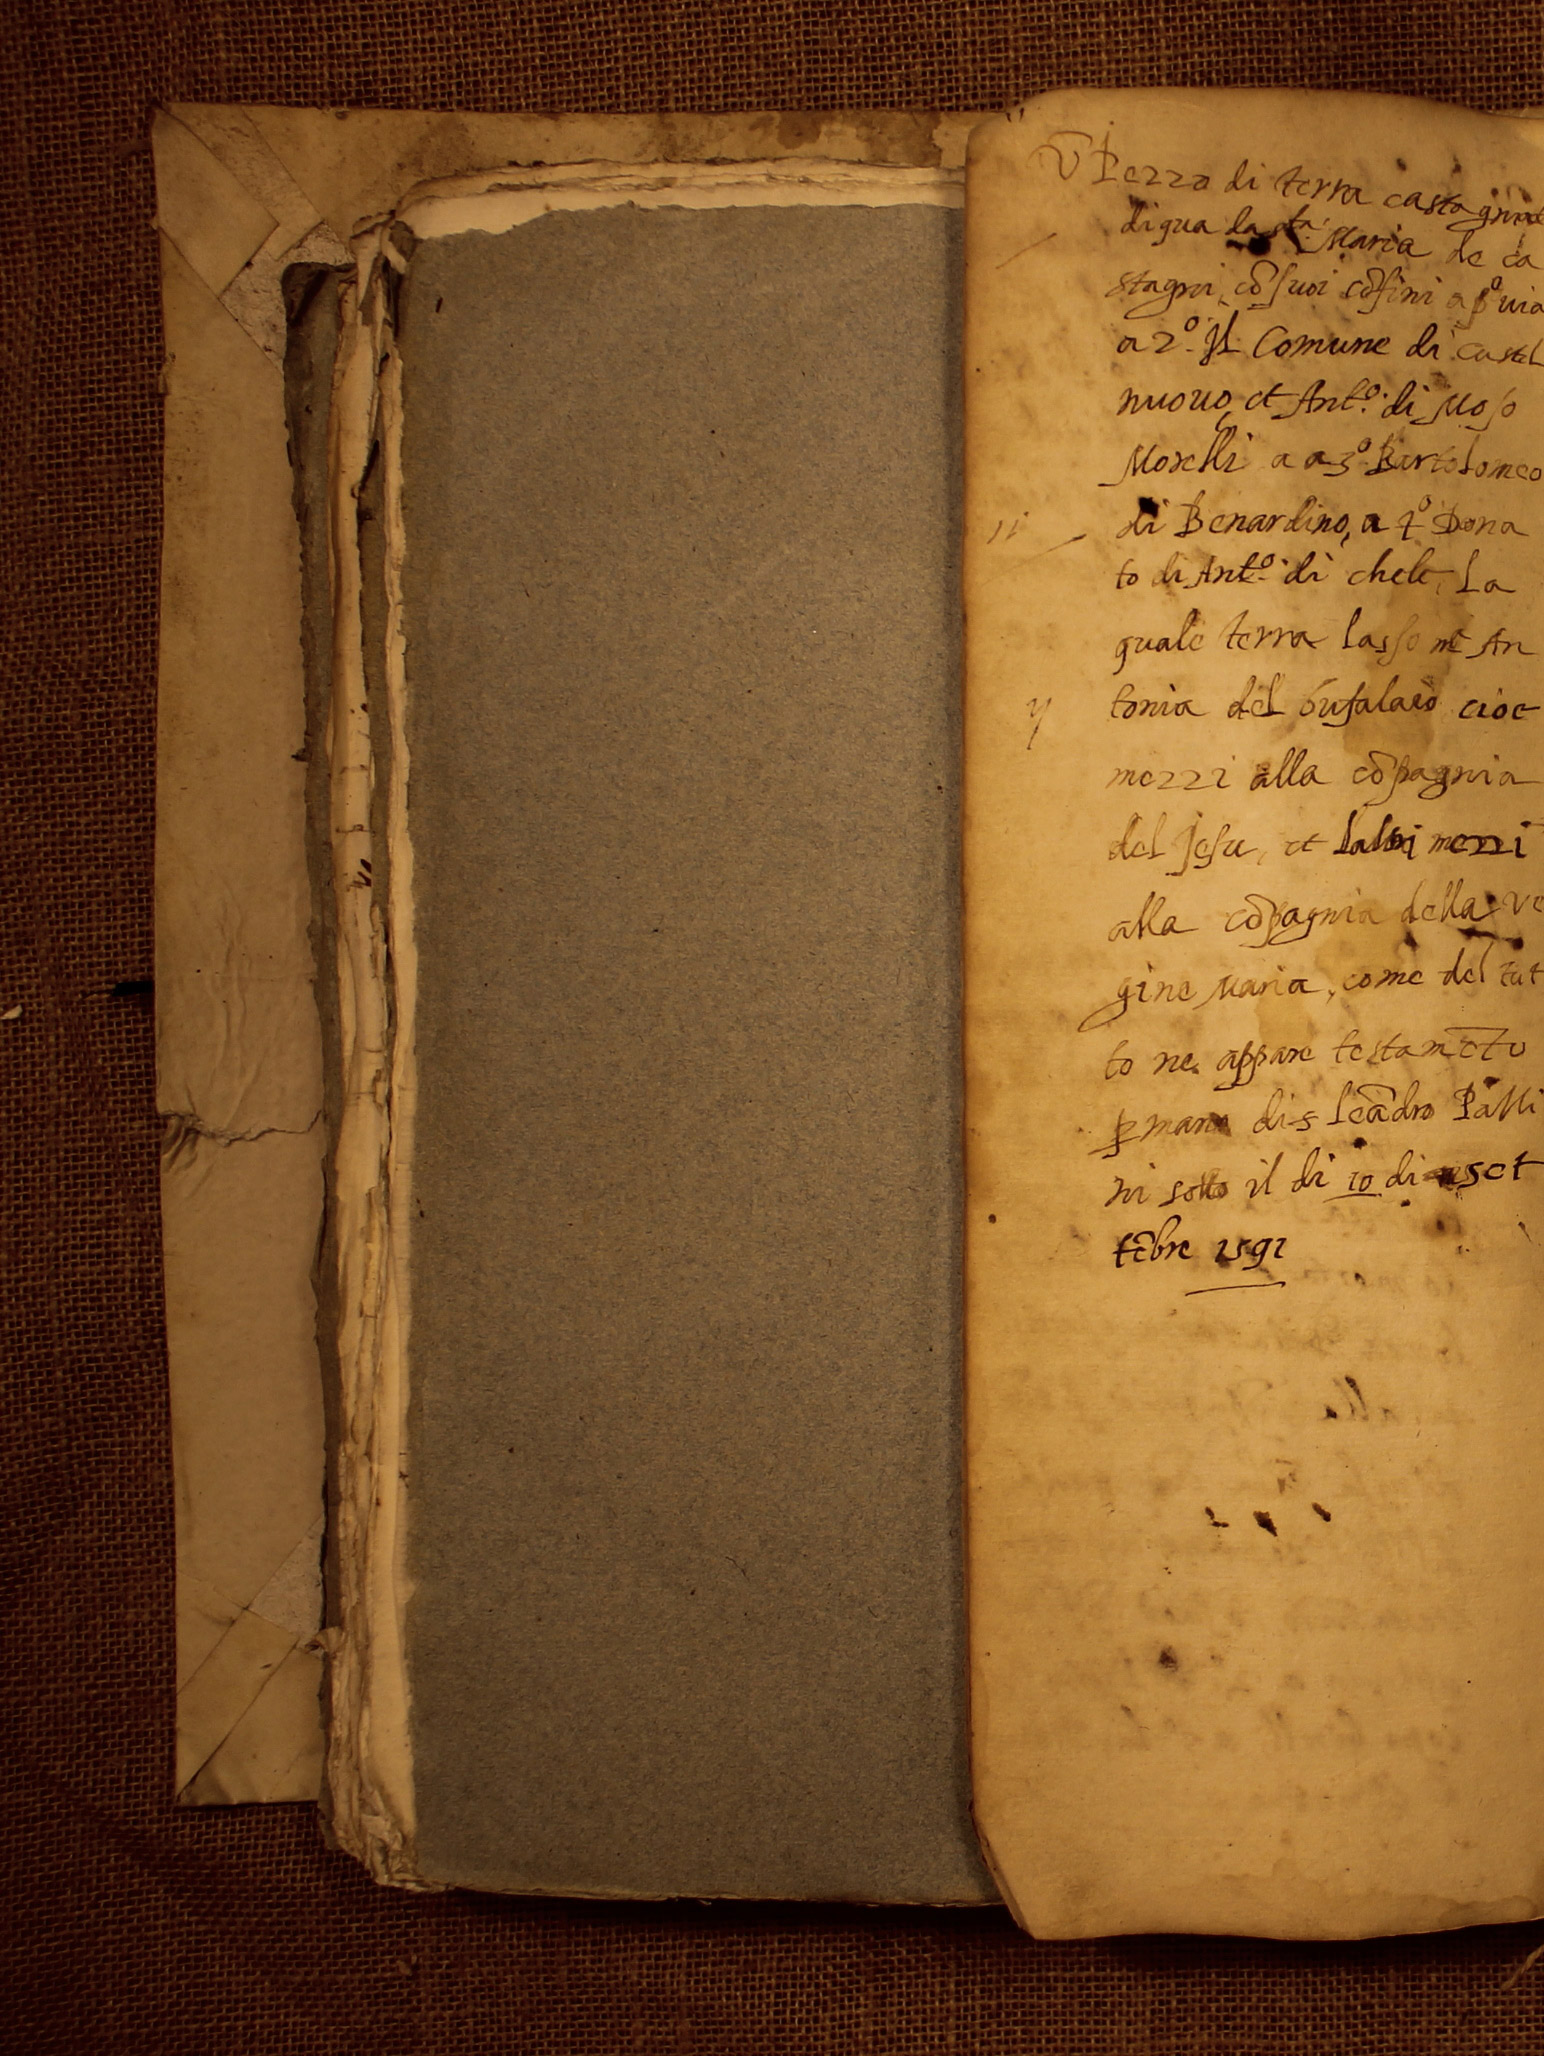 Ũ Pezzo di terra castagnat
di qua da sta Maria de ca
stagni, cõ suoi cõfini a po via
a 2o. Il Comune di Castel
nuouo, et Anto. di Moso
Morelli a a 3o. Bartolomeo
11 di Benardino, a 4o Dona
to di Anto. di chele, La
quale terra lasso mã An
y tonia del bufalaio cioe
mezzi alla cõpagnia
del Jesu, et laltri mezzi
alla cõpagnia della ve
gine Maria, come del tut
to ne appare testamẽto
p mano di s Leãdro Palli
ni sotto il di 10 di set
tẽbre 1591